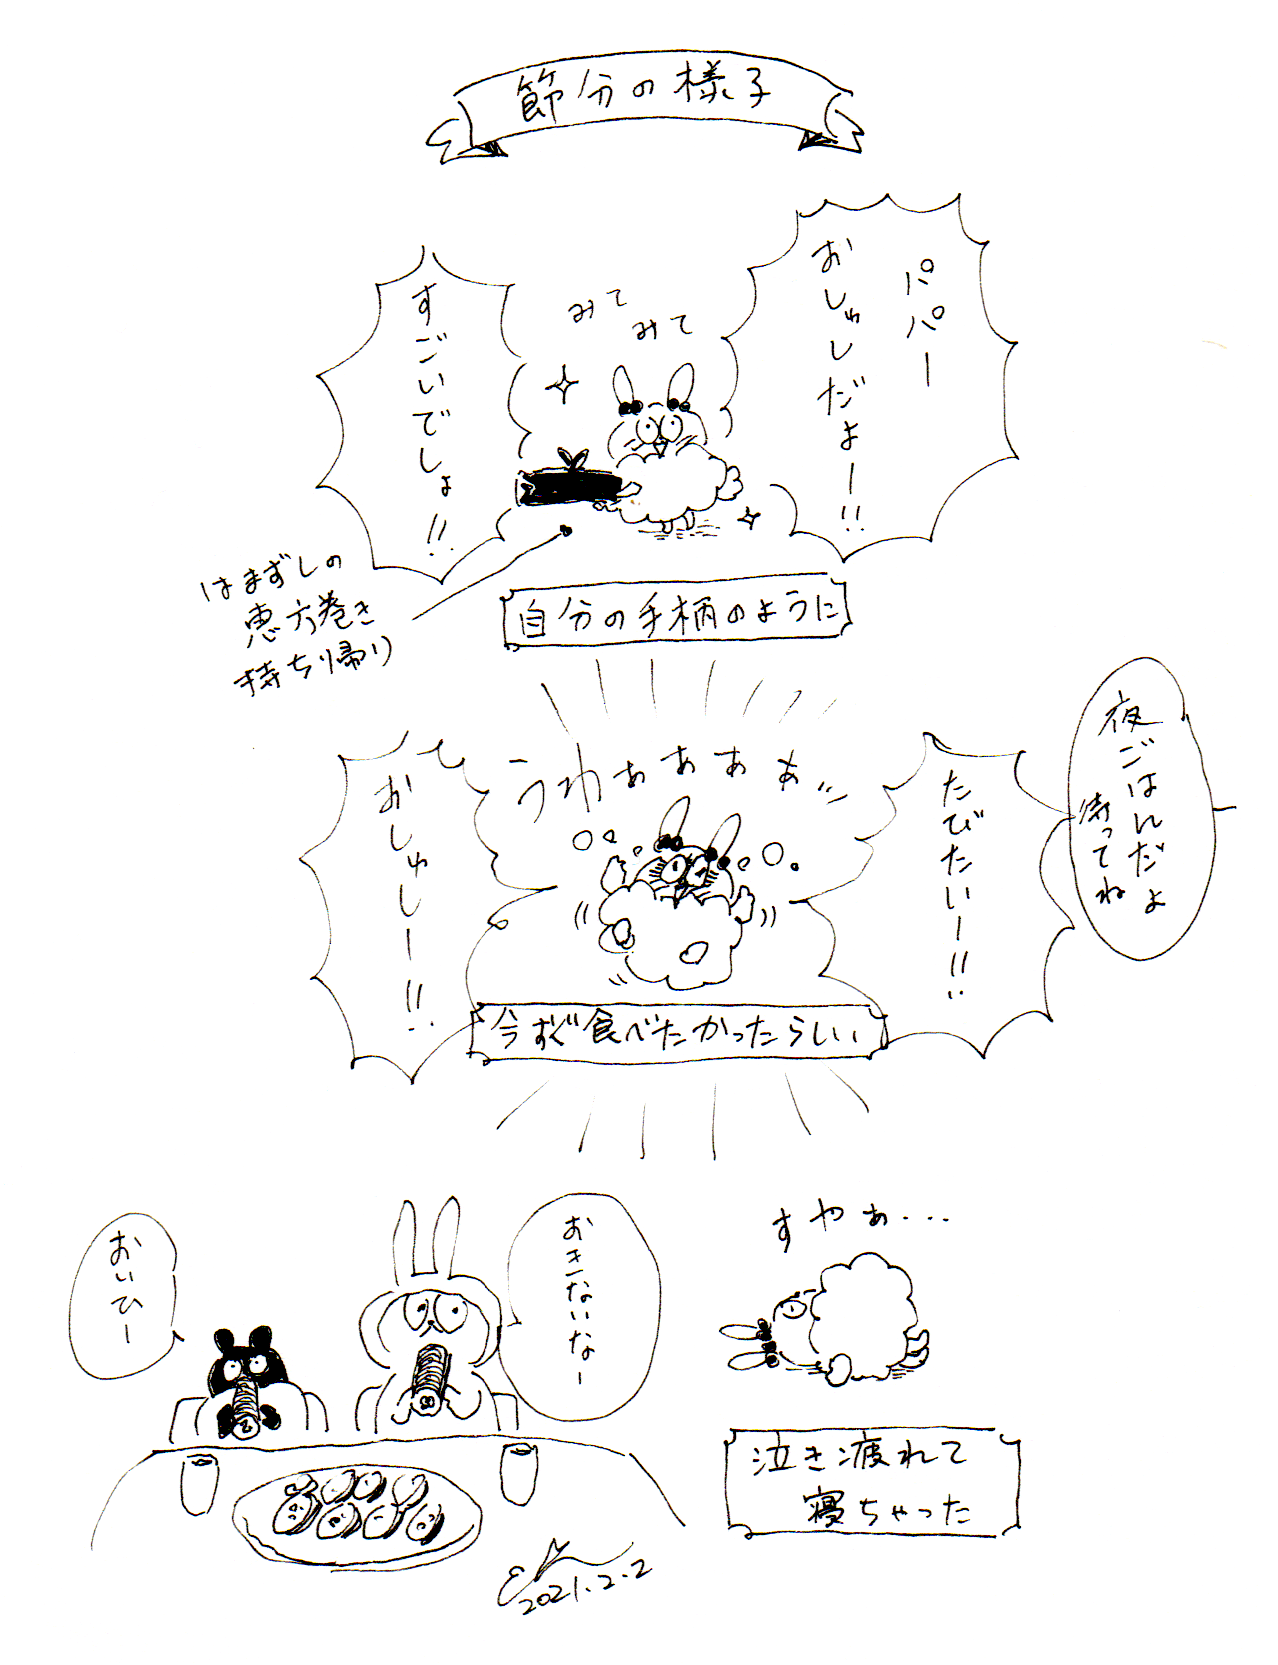 節分の様子
パパー
おしゅしだよー!!
みて
みて
すごいでしょ!!
はまずしの
恵方巻き
持ち帰り
自分の手柄のように
夜ごはんだよ
待ってね
たびたいー!!
うわぁぁぁぁ
おしゅしー!!
今すぐ食べたかったらしい
すやぁ...
おきないなー
おいひー
泣き疲れて
寝ちゃった
2021.2.2